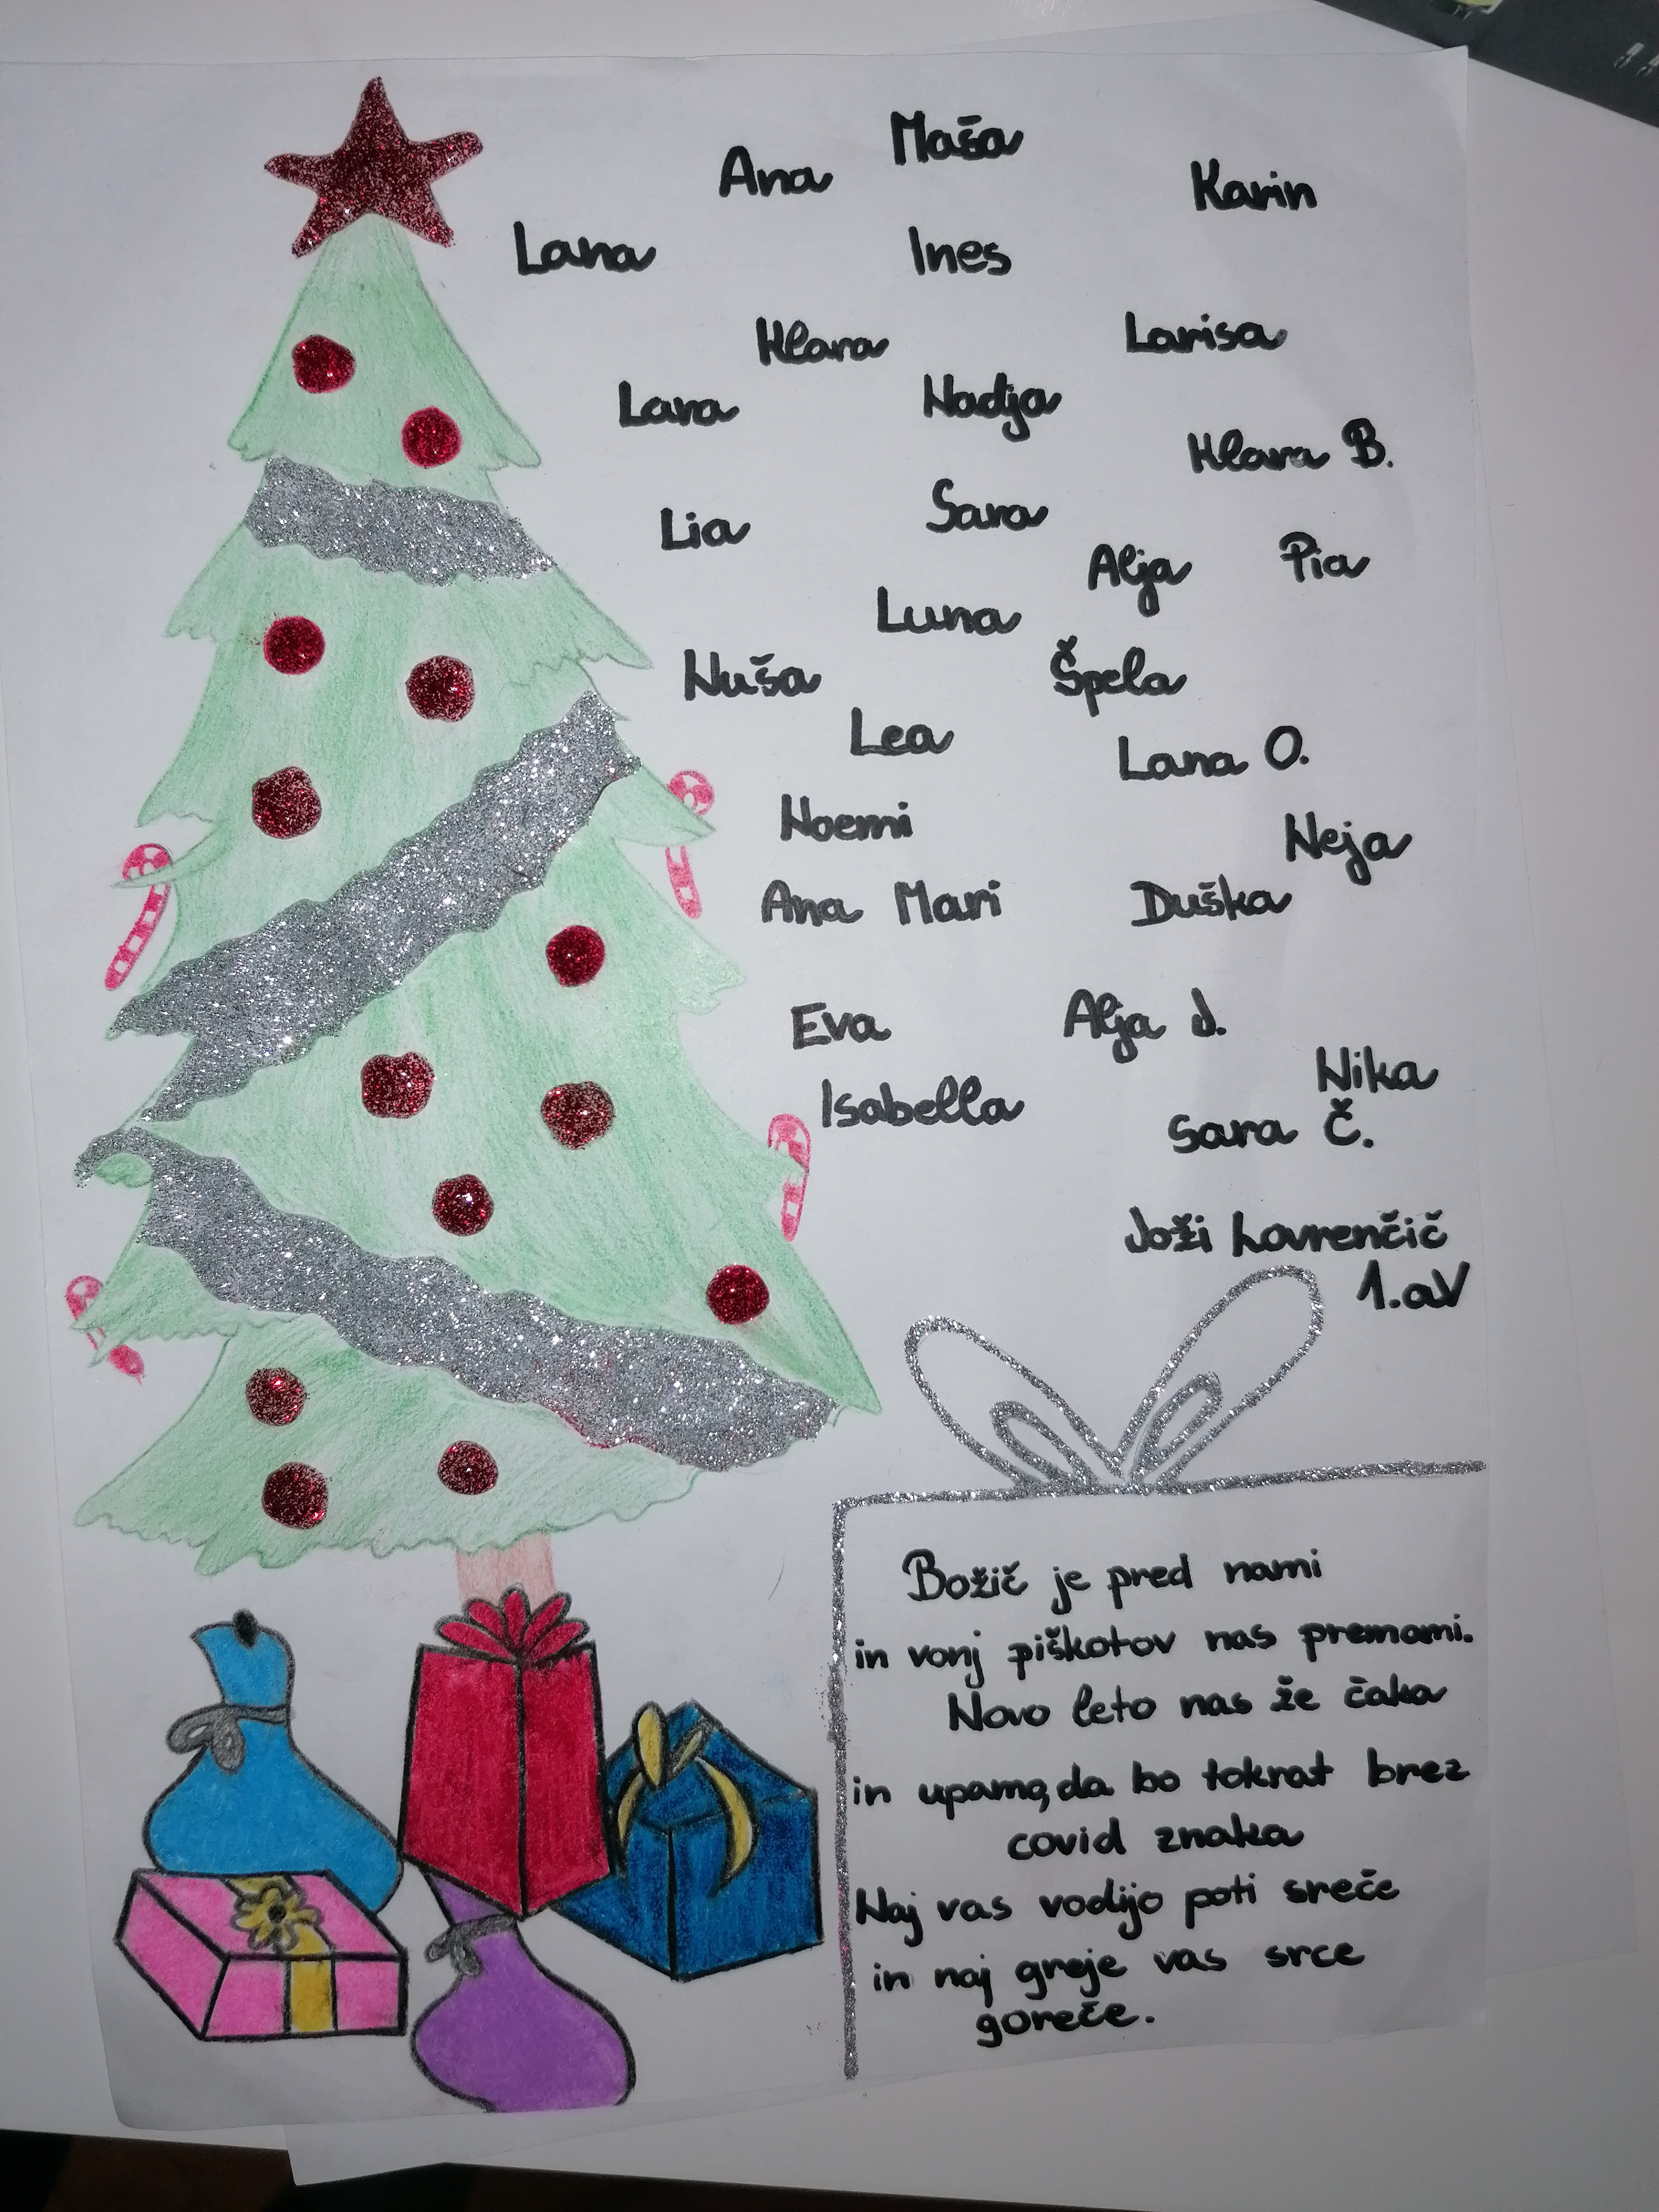 Maša
Ana
Karin
Lana
Ines
Klara
Larisa
Lara
Nadja
Klara B.
Sara
Lia
Alja
Pia
Luna
Nuša
Špela
Lea
Lana O.
Noemi
Neja
Ana Mari
Duška
Eva
Alja J.
Nika
Isabella
Sara Č.
Joži Lovrenčič
1.aV
Božič je pred nami
in vonj piškotov nas premami.
Novo leto nas že čaka
in upamo, da bo tokrat brez
covid znaka
Naj vas vodijo poti sreče
in naj greje vas srce
goreče.